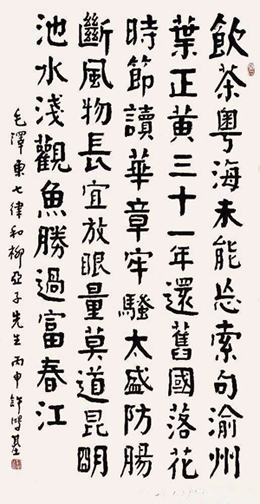 飲茶粵海未能忘索句渝州
葉正黃三十一年還舊國落花
時節讀華章牢騷太盛防腸
斷風物長宜放眼量莫道昆明
池水淺觀魚勝過富春江
毛澤東七律和柳亞子先生 丙申 許